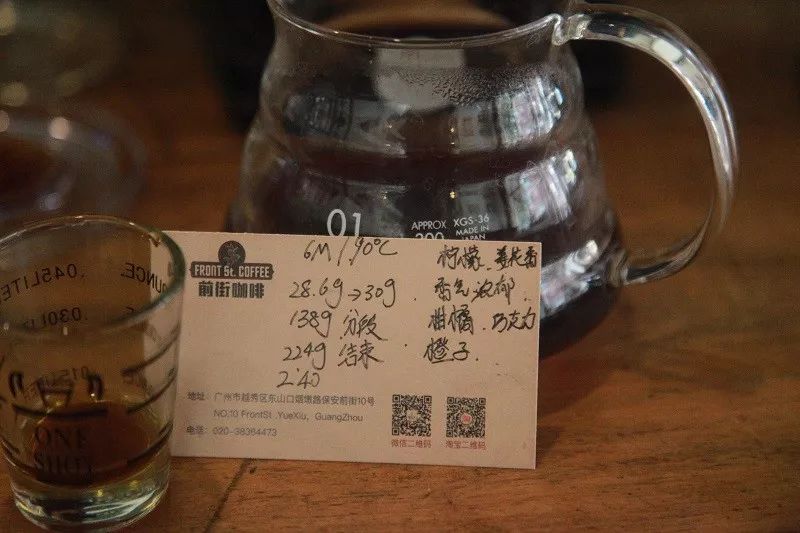 01
APPROX XGS-36
MADE IN
.045LITE
OUNCE
.030LI
ONE
SHOT
FRONT St. COFFEE
前街咖啡
6M/90℃
28.6g→30g
138g 分段
224g 结束
2'40
柠檬、姜花香
香气浓郁
柑橘、巧克力
橙子
地址：广州市越秀区东山口烟墩路保安前街10号
NO.10 FrontSt .YueXiu，GuangZhou
电话：020-38364473
微信二维码
淘宝二维码